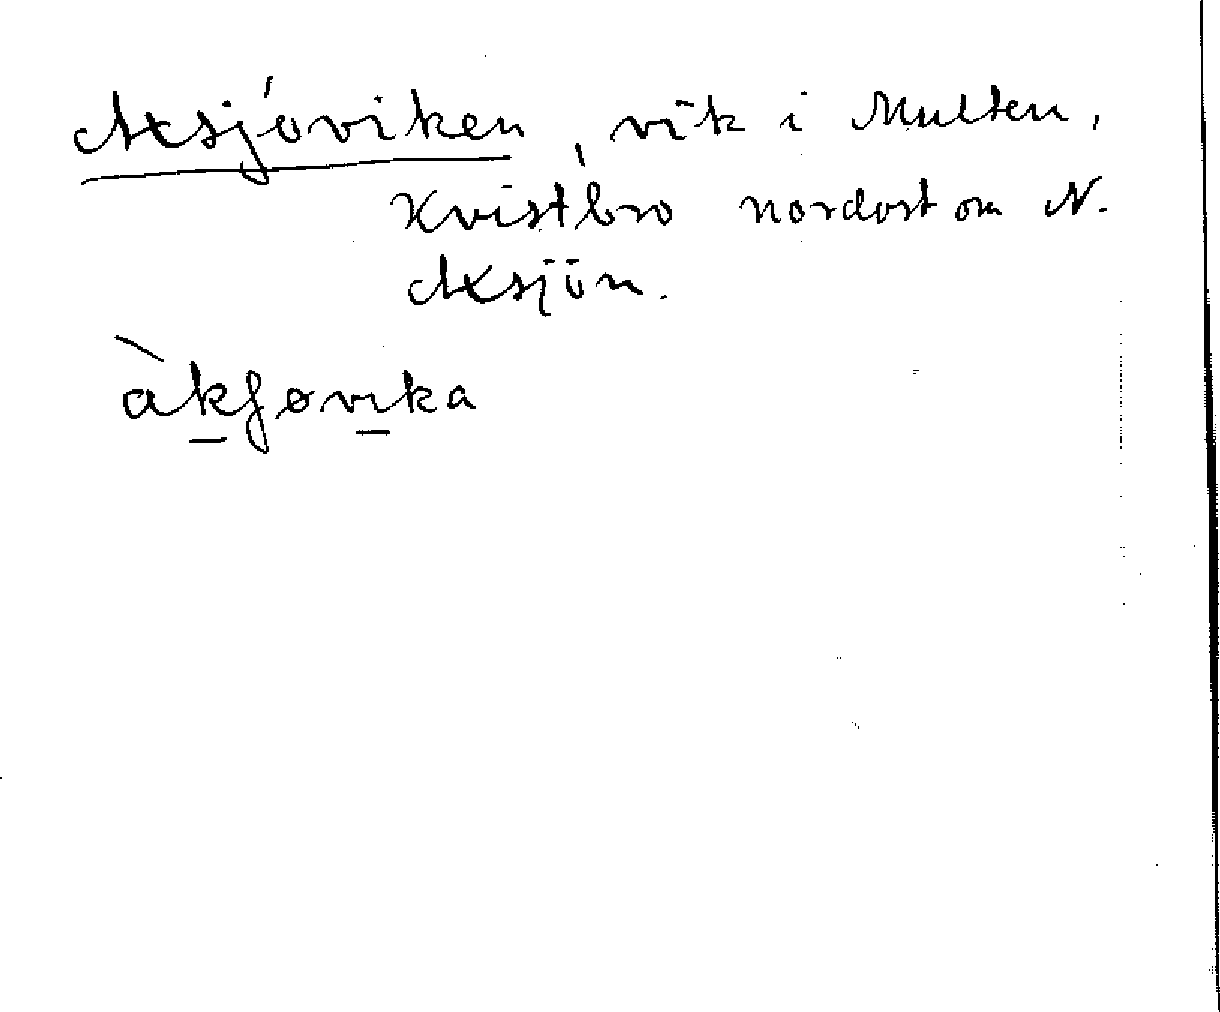 Axsjöviken, vik i Multen,
Kvistbro nordost om N.
Axsjön.
àkʃøvika